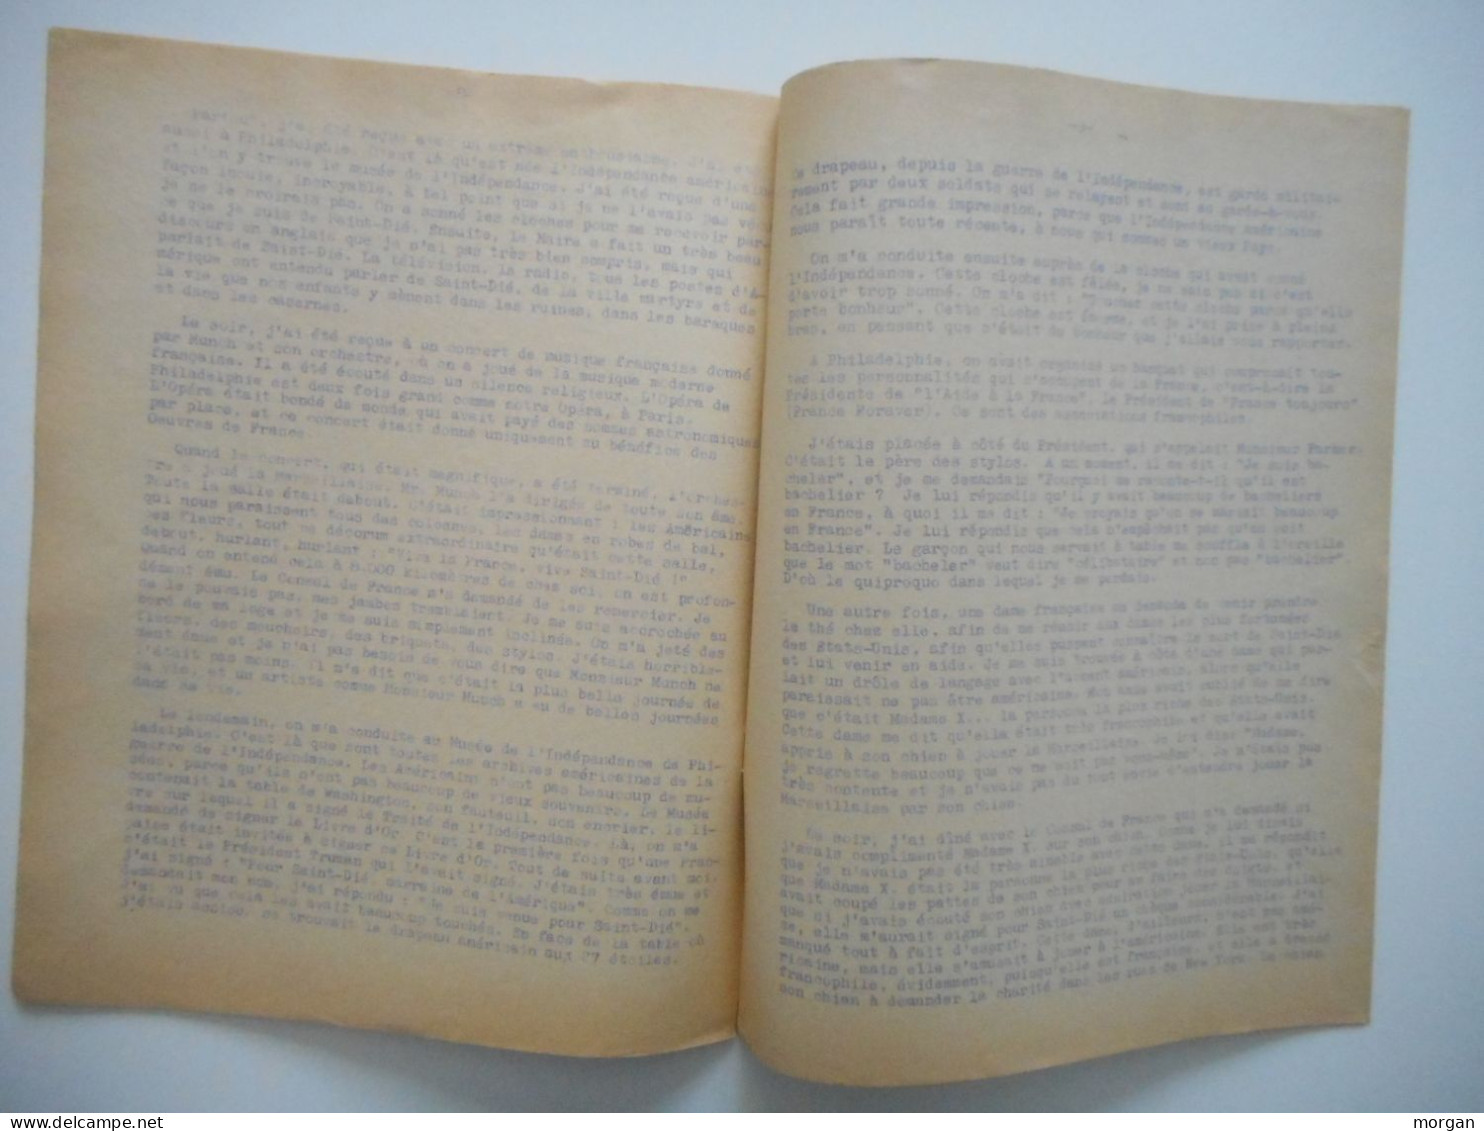 j'ai été reçue avec un extrême enthousiasme. J'ai été
aussi à Philadelphie. C'est là qu'est née l'Indépendance américaine
et l'on y trouve le musée de l'Indépendance. J'ai été reçue d'une
façon inouïe, incroyable, à tel point que si je ne l'avais pas vécu
je ne le croirais pas. On a sonné les cloches pour me recevoir par-
ce que je suis de Saint-Dié. Ensuite, le Maire a fait un très beau
discours en anglais que je n'ai pas très bien compris, mais qui
parlait de Saint-Dié. La télévision, la radio, tous les postes d'A-
mérique ont entendu parler de Saint-Dié, de la ville martyre et de
la vie que nos enfants y mènent dans les ruines, dans les baraques
et dans les casernes.
Le soir, j'ai été reçue à un concert de musique française donné
par Munch et son orchestre, où on a joué de la musique moderne
française. Il a été écouté dans un silence religieux. L'Opéra de
Philadelphie est deux fois grand comme notre Opéra, à Paris.
L'Opéra était bondé de monde qui avait payé des sommes astronomiques
par place, et ce concert était donné uniquement au bénéfice des
Oeuvres de France.
Quand le concert, qui était magnifique, a été terminé, l'orches-
tre a joué la Marseillaise. Mr. Munch l'a dirigée de toute son âme.
Toute la salle était debout. C'était impressionnant : les Américains
qui nous paraissent tous des colosses, les dames en robes de bal,
des fleurs, tout ce décorum extraordinaire qu'était cette salle,
debout, hurlant, hurlant : "Vive la France, vive Saint-Dié !"
Quand on entend cela à 8.000 kilomètres de chez soi, on est profon-
dément ému. Le Consul de France m'a demandé de les remercier. Je
ne le pouvais pas, mes jambes tremblaient. Je me suis accrochée au
bord de ma loge et je me suis simplement inclinée. On m'a jeté des
fleurs, des mouchoirs, des briquets, des stylos. J'étais horrible-
ment émue et je n'ai pas besoin de vous dire que Monsieur Munch ne
l'était pas moins. Il m'a dit que c'était la plus belle journée de
sa vie, et un artiste comme Monsieur Munch a eu de belles journées
dans sa vie.
Le lendemain, on m'a conduite au Musée de l'Indépendance de Phi-
ladelphie. C'est là que sont toutes les archives américaines de la
guerre de l'Indépendance. Les Américains n'ont pas beaucoup de mu-
sées, parce qu'ils n'ont pas beaucoup de vieux souvenirs. Le Musée
contenait la table de Washington, son fauteuil, son encrier, le li-
vre sur lequel il a signé le Traité de l'Indépendance. Là, on m'a
demandé de signer le Livre d'Or. C'est la première fois qu'une Fran-
çaise était invitée à signer ce Livre d'Or. Tout de suite avant moi,
c'était le Président Truman qui l'avait signé. J'étais très émue et
j'ai signé : "Pour Saint-Dié, marraine de l'Amérique". Comme on me
demandait mon nom, j'ai répondu : "Je suis venue pour Saint-Dié".
J'ai vu que cela les avait beaucoup touchés. En face de la table où
j'étais assise, se trouvait le drapeau américain aux 27 étoiles.
Ce drapeau, depuis la guerre de l'Indépendance, est gardé militai-
rement par deux soldats qui se relayent et sont au garde-à-vous.
Cela fait grande impression, parce que l'Indépendance américaine
nous paraît toute récente, à nous qui sommes un vieux Pays.
On m'a conduite ensuite auprès de la cloche qui avait sonné
l'Indépendance. Cette cloche est fêlée, je ne sais pas si c'est
d'avoir trop sonné. On m'a dit : "Touchez cette cloche parce qu'elle
porte bonheur". Cette cloche est énorme, et je l'ai prise à pleins
bras, en pensant que c'était du bonheur que j'allais vous rapporter.
A Philadelphie, on avait organisé un banquet qui comprenait tou-
tes les personnalités qui s'occupent de la France, c'est-à-dire la
Présidente de "l'Aide à la France", le Président de "France toujours"
(France Forever). Ce sont des associations francophiles.
J'étais placée à côté du Président, qui s'appelait Monsieur Parker.
C'était le père des stylos. A un moment, il me dit : "Je suis ba-
chelor", et je me demandais "Pourquoi me raconte-t-il qu'il est
bachelier ? Je lui répondis qu'il y avait beaucoup de bacheliers
en France, à quoi il me dit : "Je croyais qu'on se mariait beaucoup
en France". Je lui répondis que cela n'empêchait pas qu'on soit
bachelier. Le garçon qui nous servait à table me souffla à l'oreille
que le mot "bachelor" veut dire "célibataire" et non pas "bachelier".
D'où le quiproquo dans lequel je me perdais.
Une autre fois, une dame française me demanda de venir prendre
le thé chez elle, afin de me réunir aux dames les plus fortunées
des Etats-Unis, afin qu'elles pussent connaître le sort de Saint-Dié
et lui venir en aide. Je me suis trouvée à côté d'une dame qui par-
lait un drôle de langage avec l'accent américain. Alors qu'elle
paraissait ne pas être américaine. On avait oublié de me dire
que c'était Madame X... la personne la plus riche des Etats-Unis.
Cette dame me dit qu'elle était très francophile et qu'elle avait
appris à son chien à jouer la Marseillaise. Je lui dis "Madame,
je regrette beaucoup que ce ne soit pas vous-même". Je n'étais pas
très contente et je n'avais pas du tout envie d'entendre jouer la
Marseillaise par son chien.
Un soir, j'ai dîné avec le Consul de France qui m'a demandé si
j'avais complimenté Madame X. sur son chien. Comme je lui disais
que je n'avais pas été très aimable avec cette dame, il me répondit
que Madame X. était la personne la plus riche des Etats-Unis, qu'elle
avait coupé les pattes de son chien pour se faire des doigts, et
que si j'avais écouté son chien avec admiration jouer la Marseillai-
se, elle m'aurait signé pour Saint-Dié un chèque considérable. J'ai
manqué tout à fait d'esprit. Cette dame, d'ailleurs, n'est pas amé-
ricaine, mais elle s'amusait à jouer à l'américaine. Elle est très
francophile, évidemment, puisqu'elle est française, et elle a dressé
son chien à demander la charité dans les rues de New York.
morgan